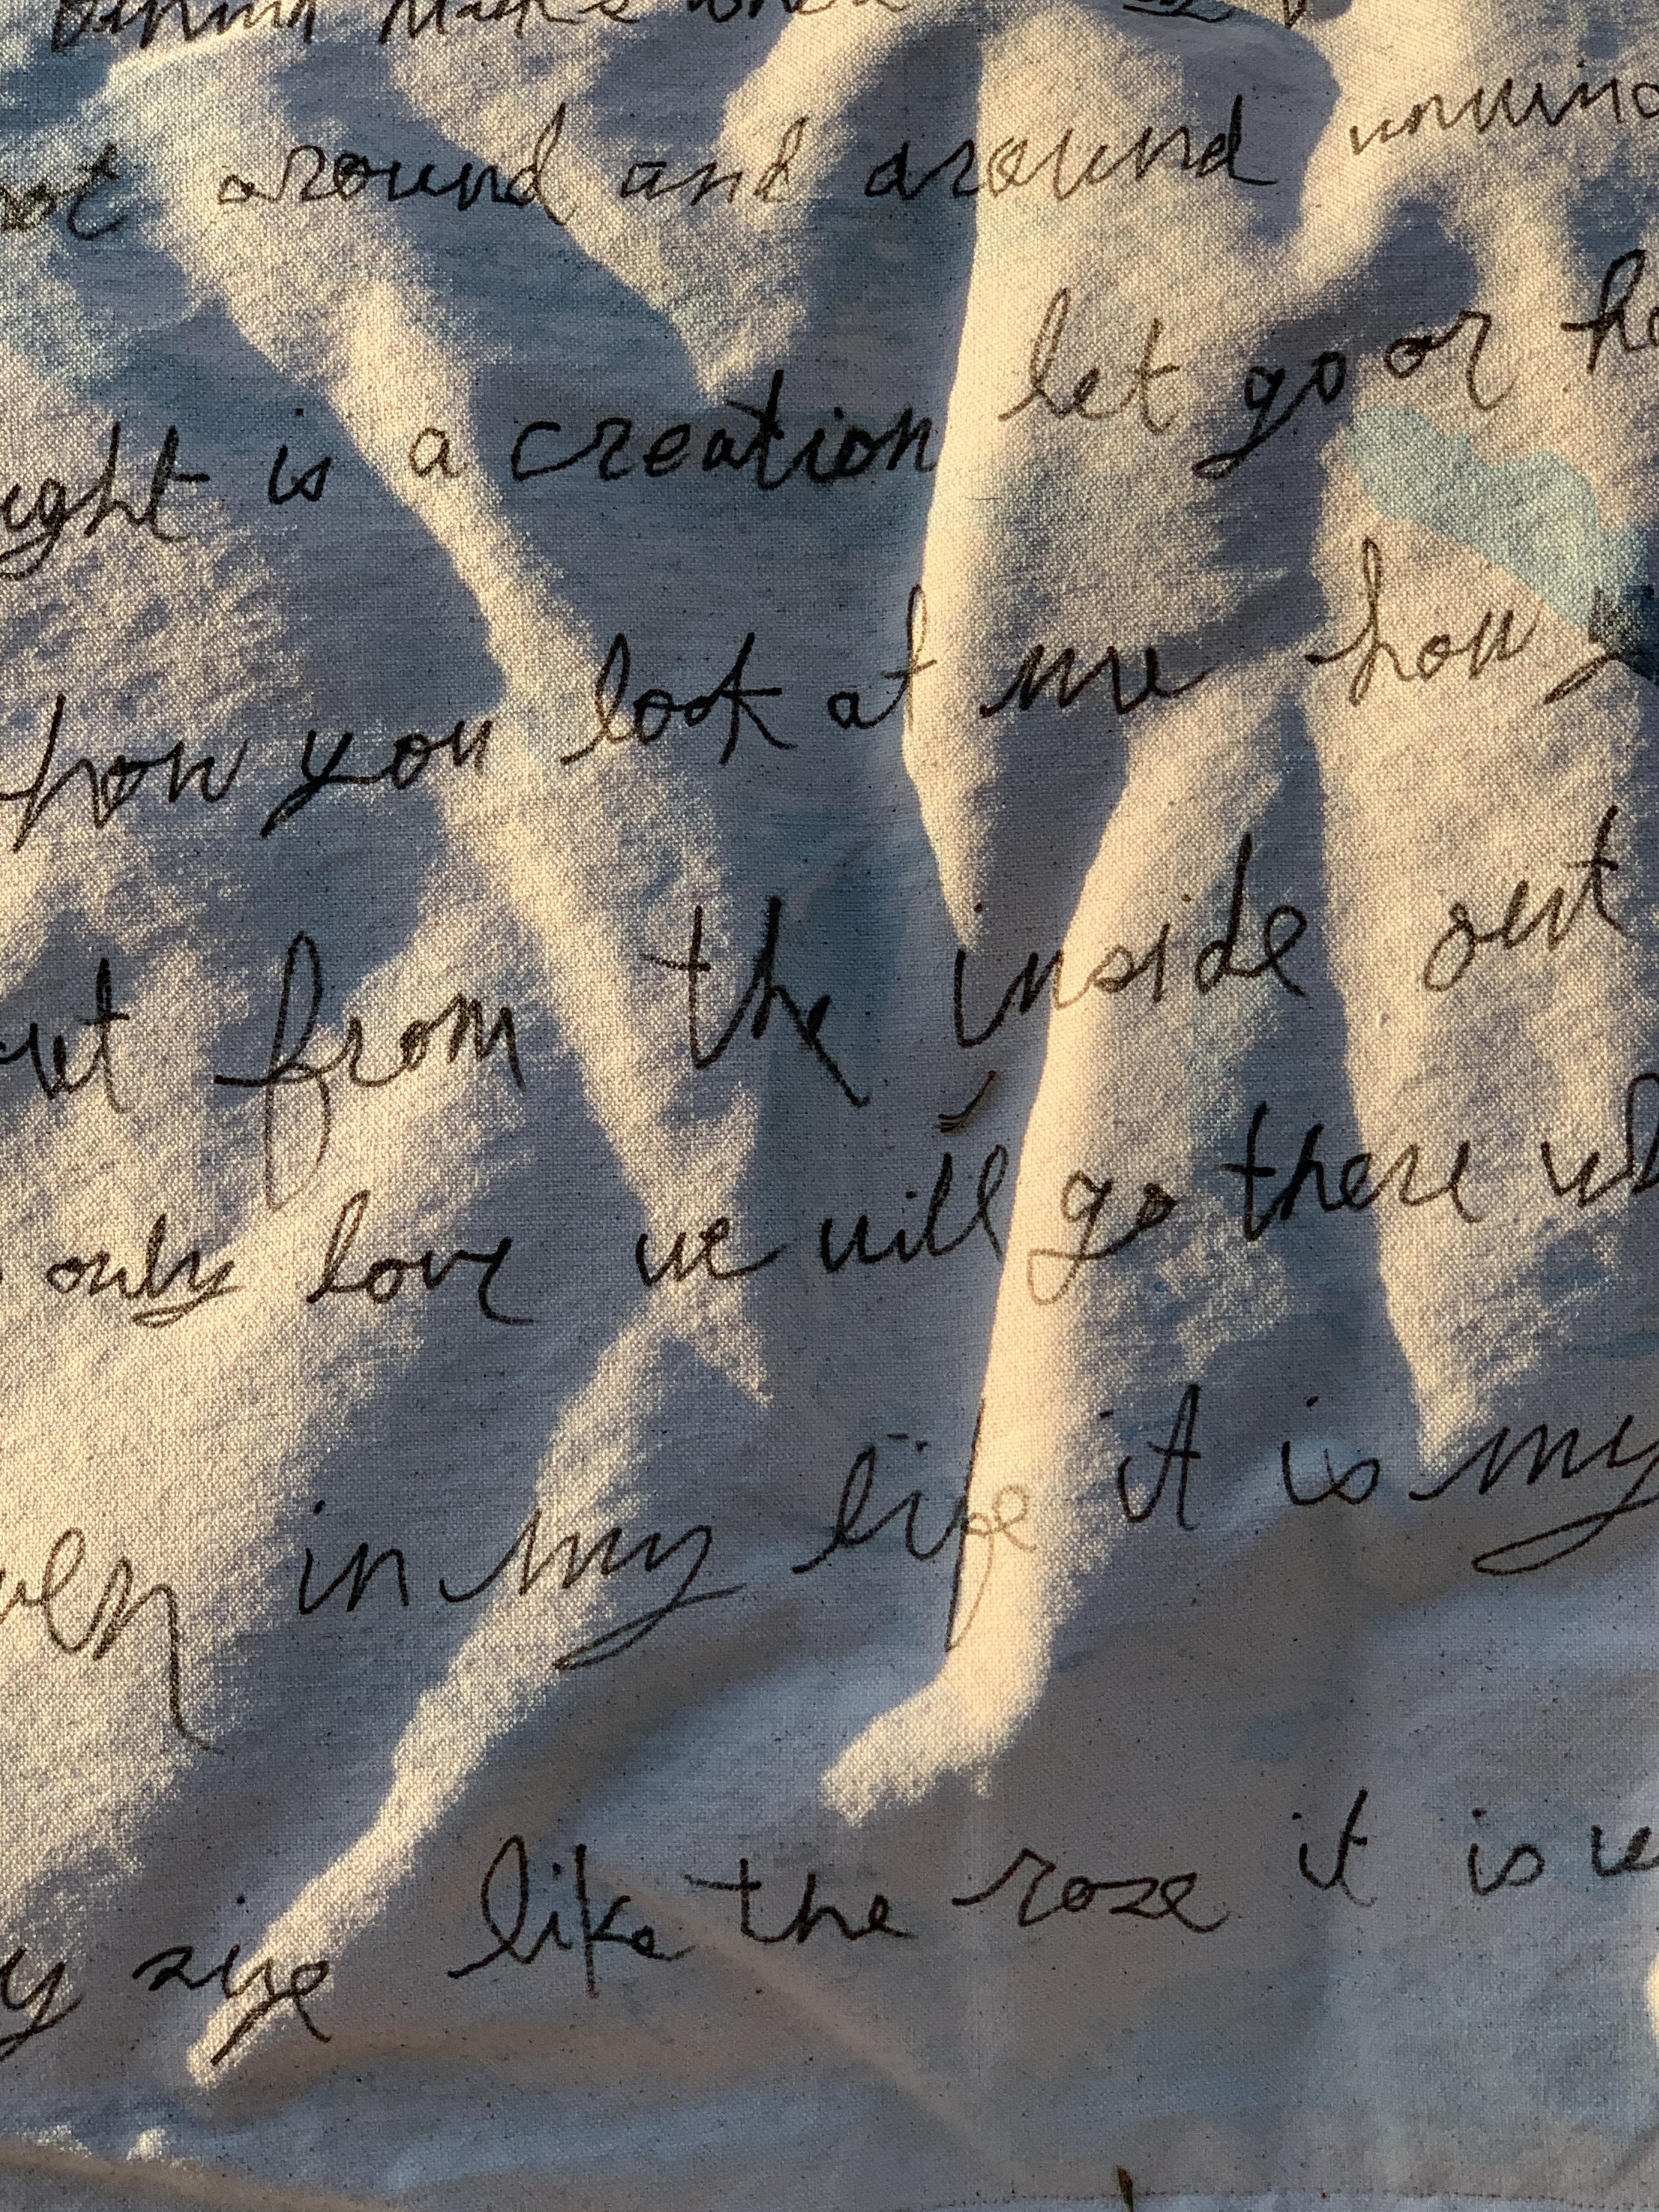 around and around
is a creation let go or
how you look at me how
from the inside out
only love we will go there
in my life it is my
like the rose it is